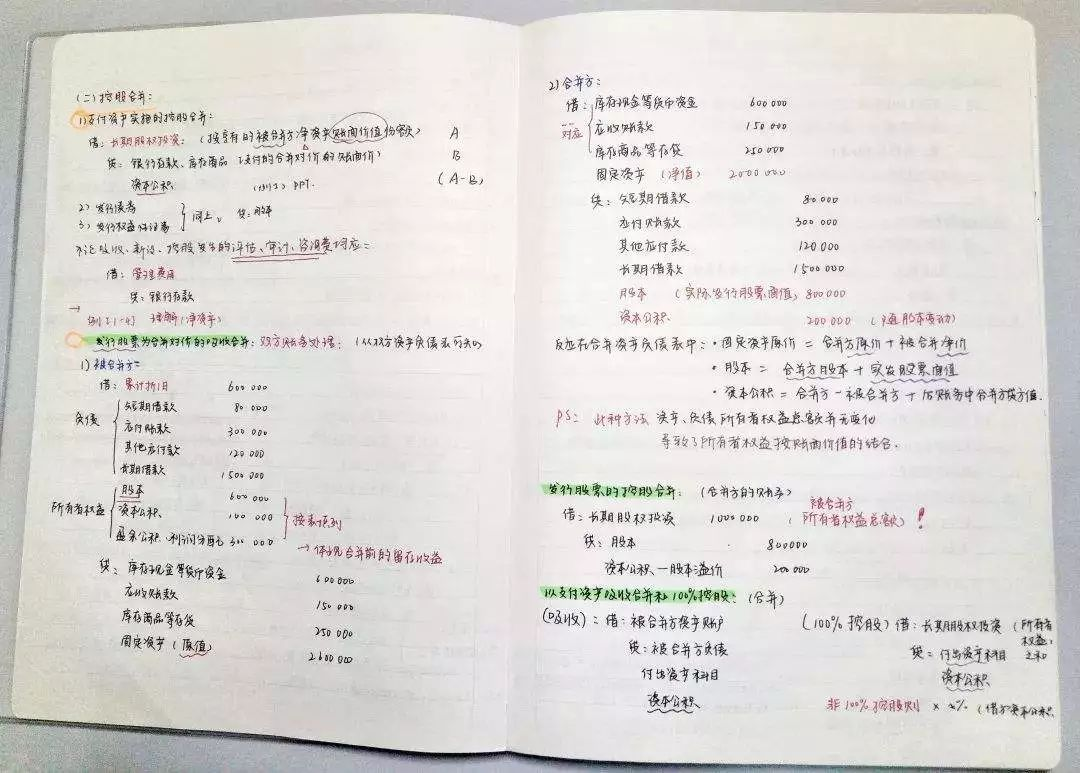 (二) 控股合并:
1) 支付资产实施的控股合并:
借: 长期股权投资: (按享有的被合并方净资产账面价值份额) A
贷: 银行存款、库存商品 (支付的合并对价的账面价) B
资本公积 PPT. (A-B)
2) 发行债券
3) 发行权益性证券 } 同上、 贷: 股本
不论吸收、新设、控股发生的评估、审计、咨询费均应=
借: 管理费用
贷: 银行存款
→ 例[1-4] 理解(净资产)
发行股票为合并对价的吸收合并: 双方账务处理: (从双方资产负债表可知)
1) 被合并方=
借: 累计折旧 600 000
负债 短期借款 80 000
应付账款 300 000
其他应付款 120 000
长期借款 1500 000
所有者权益 股本 600 000
资本公积 100 000
盈余公积、利润分配 300 000
} 按表顶列
→ 体现合并前的留存收益
贷: 库存现金等货币资金 600 000
应收账款 150 000
库存商品等存货 250 000
固定资产 (原值) 2600 000
2) 合并方:
借: 库存现金等货币资金 600 000
对应 应收账款 150 000
库存商品等存货 250 000
固定资产 (净值) 2000 000
贷: 短期借款 80 000
应付账款 300 000
其他应付款 120 000
长期借款 1500 000
股本 (实际发行股票面值) 800 000
资本公积 200 000 (随股本变动)
反应在合并资产负债表中: · 固定资产原价 = 合并方原价 + 被合并净价
· 股本 = 合并方股本 + 实发股票面值
· 资本公积 = 合并方 - 被合并方 + 账务中合并方贷方值.
PS: 此种方法 资产、负债 所有者权益总额并无变化
导致了所有者权益按账面价值的结合.
发行股票的控股合并: (合并方的账务)
借: 长期股权投资 1000 000 (被合并方所有者权益总额) !
贷: 股本 800000
资本公积—股本溢价 200 000
以支付资产吸收合并和100%控股: (合并)
(吸收) = 借: 被合并方资产账户
贷: 被合并方负债
付出资产科目
资本公积
(100%控股) 借: 长期股权投资 (所有者权益之和)
贷: 付出资产科目
资本公积
非100%控股则 × x% (借方资本公积